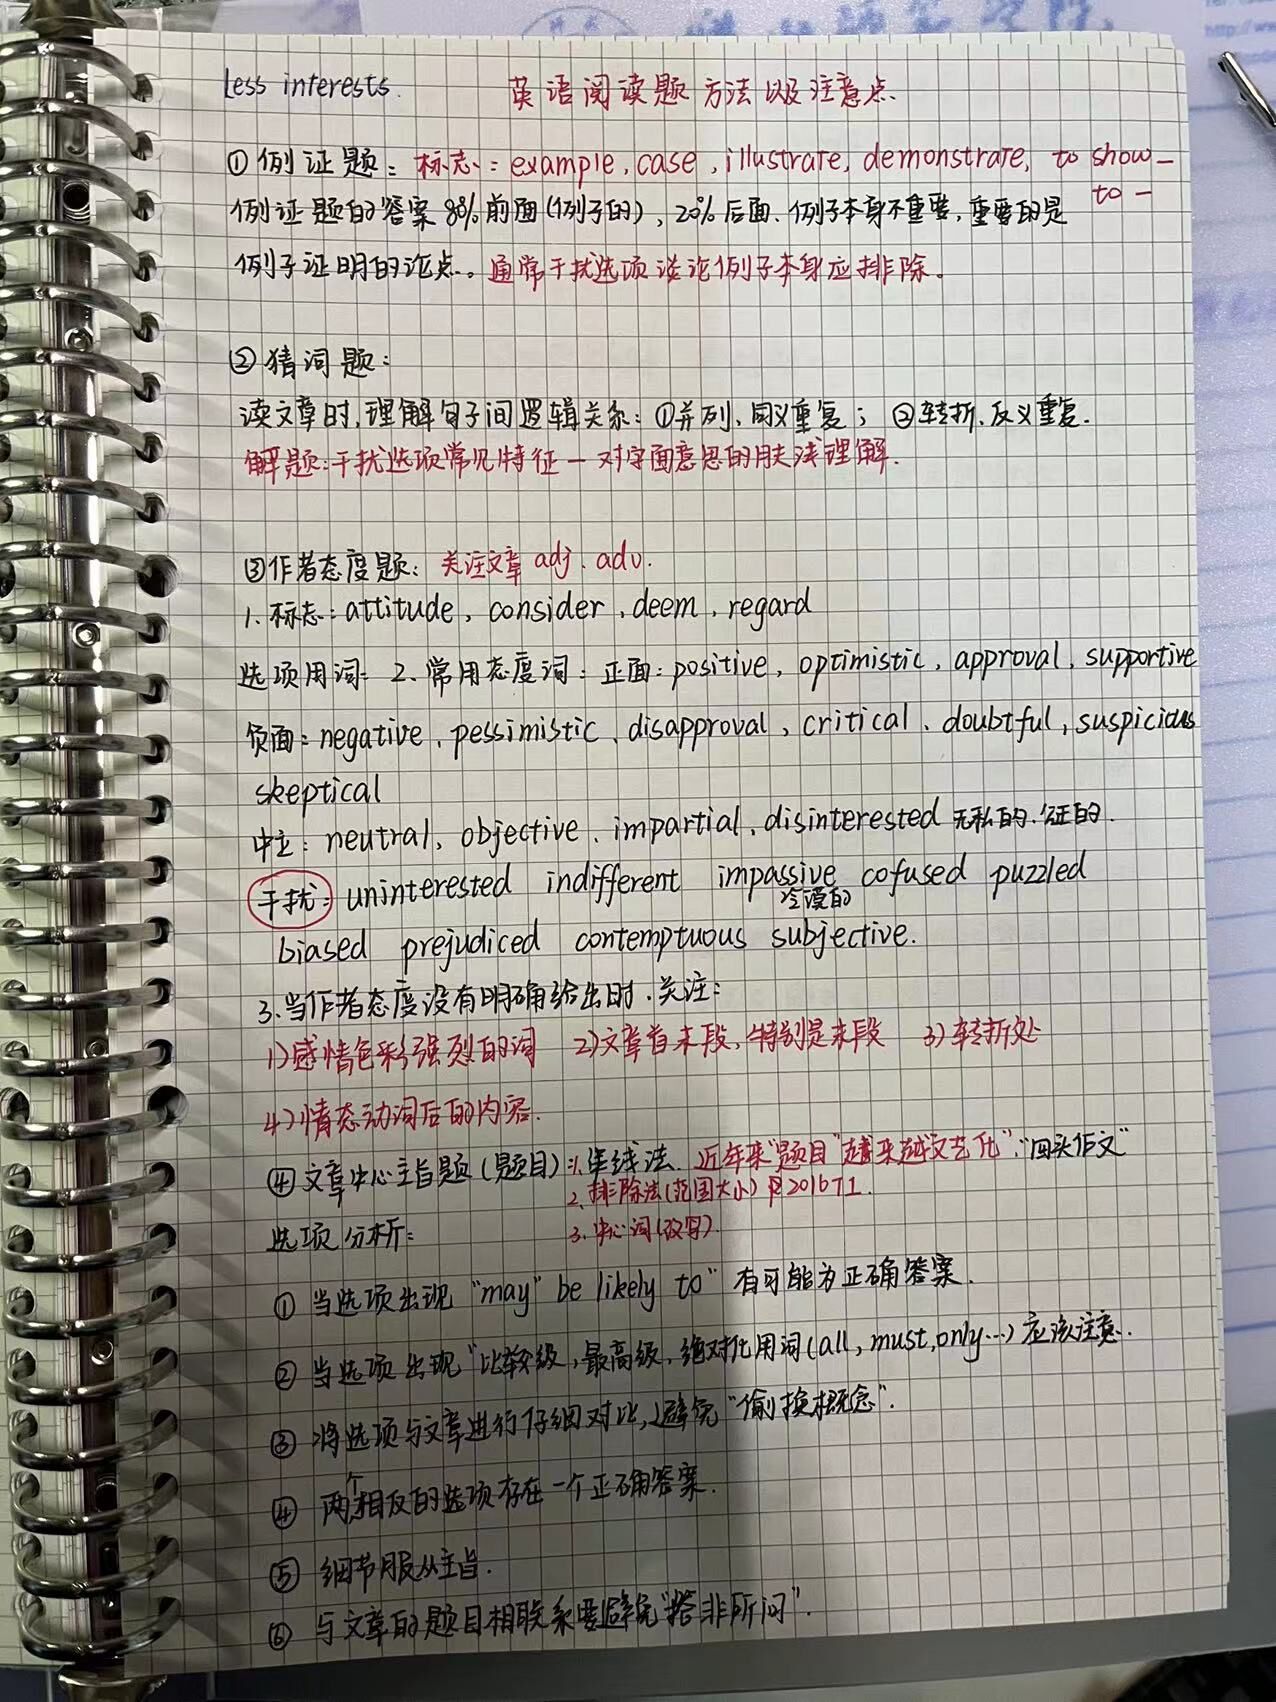 less interests. 英语阅读题方法以及注意点
①例证题：标志：example, case, illustrate, demonstrate, to show—
to —
例证题的答案80%前面(例子的)，20%后面、例子本身不重要，重要的是
例子证明的论点。通常干扰选项谈论例子本身应排除。
②猜词题：
读文章时，理解句子间逻辑关系：①并列、同义重复；②转折、反义重复.
解题：干扰选项常见特征—对字面意思的肤浅理解.
③作者态度题：关注文章 adj、adv.
1、标志：attitude, consider, deem, regard
选项用词：2、常用态度词：正面：positive, optimistic, approval, supportive
负面：negative, pessimistic, disapproval, critical, doubtful, suspicious
skeptical
中立：neutral, objective, impartial, disinterested 无私的、公正的.
干扰：uninterested indifferent impassive cofused puzzled
冷漠的
biased prejudiced contemptuous subjective.
3、当作者态度没有明确给出时、关注：
1)感情色彩强烈的词 2)文章首末段，特别是末段 3)转折处
4)情态动词后的内容.
④文章中心主旨题(题目)：1、串线法. 近年来"题目"越来越文艺化"，"回头作文"
2、排除法(范围大小) 2016T1.
3、中心词(改写).
选项分析：
①当选项出现"may" be likely to" 有可能为正确答案.
②当选项出现"比较级，最高级，绝对化用词(all, must, only…)应该注意.
③将选项与文章进行仔细对比，避免"偷换概念".
④两个相反的选项存在一个正确答案.
⑤细节服从主旨.
⑥与文章的题目相联系要避免"答非所问".